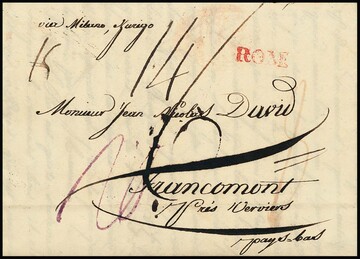 via Milano, Zurigo
ROME
14
Monsieur Jean Nicolas David
Francomont
Près Verviers
pays-bas